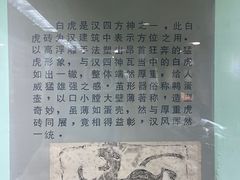 白虎是汉四方神之一，此白
虎砖为汉建筑用砖，
以高浮雕手法塑出昂首狂奔的猛
虎形象，与四神瓦当中的白虎
如出一辙，整体端然厚重，给人
威猛雄强之感。茧形器俗称鸭蛋
壶，以口小膛大壁薄著称，造型
奇妙，虽薄如蛋壳，然与厚重白虎
砖同展，竟相得益彰，汉风浑然
一统。